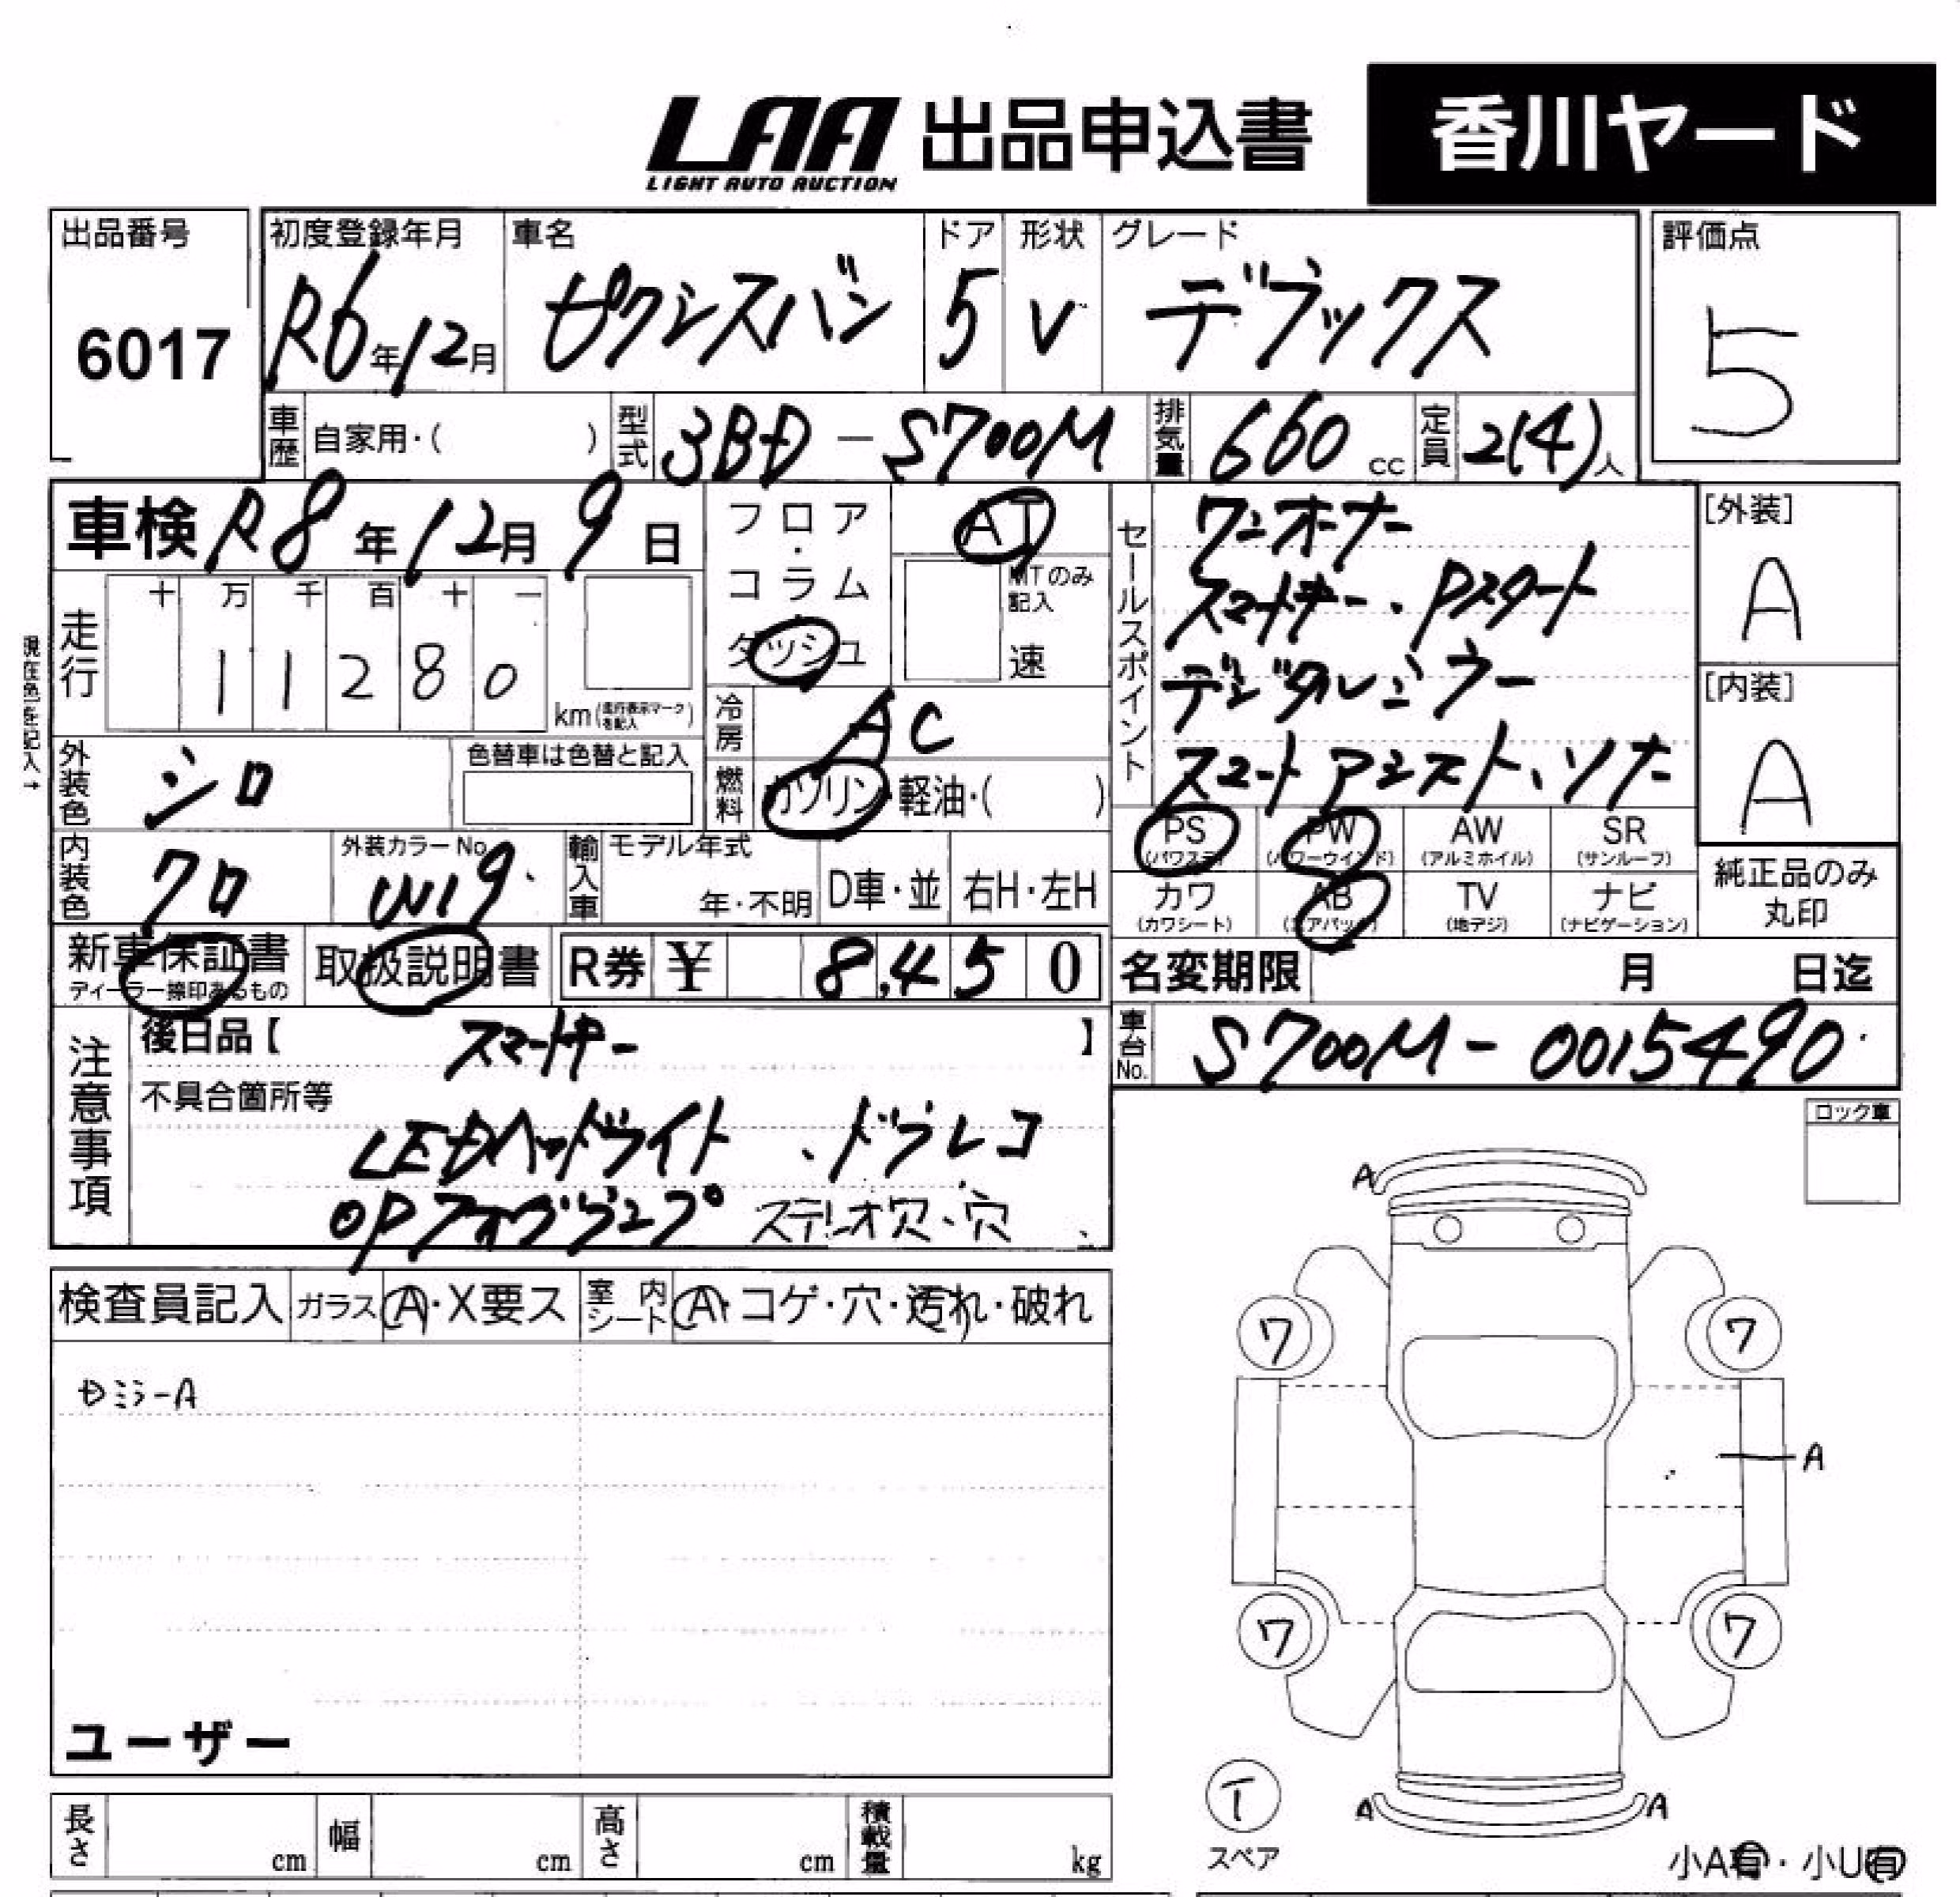 LAA 出品申込書 香川ヤード
LIGHT AUTO AUCTION
出品番号 初度登録年月 車名 ドア 形状 グレード 評価点
6017 R6年12月 ピクシスバン 5 V デラックス 5
車歴 自家用・( ) 型式 3BD-S700M 排気量 660 cc 定員 2(4)人
車検 R8年12月9日 フロア・コラム・ダッシュ AT
MTのみ記入 速
セールスポイント
ワンオーナー
スマートキー・Pスタート
デジタルミラー
スマートアシスト、ソナー
[外装]
A
[内装]
A
現在色を記入→
走行 十 万 千 百 十 一
1 1 2 8 0
km(走行表示マークを記入)
冷房 AC
外装色 シロ 色替車は色替と記入
燃料 ガソリン・軽油・( )
PS (パワステ) PW (パワーウインド) AW (アルミホイル) SR (サンルーフ)
カワ (カワシート) AB (エアバック) TV (地デジ) ナビ (ナビゲーション)
純正品のみ丸印
内装色 クロ 外装カラーNo. W19 輸入車 モデル年式 年・不明 D車・並 右H・左H
新車保証書 ディーラー捺印あるもの 取扱説明書 R券 ¥ 8,450
名変期限 月 日迄
車台No. S700M-0015490
注意事項
後日品【 スマートキー 】
不具合箇所等
LEDヘッドライト、ドラレコ
OPフォグランプ ステレオ穴、穴
ロック車
検査員記入 ガラス A・X要ス 室内シート A・コゲ・穴・汚れ・破れ
ミラーA
ユーザー
A
ワ ワ
A
ワ ワ
T
スペア
A A
小A有・小U有
長さ cm 幅 cm 高さ cm 積載量 kg